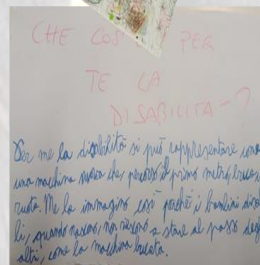 CHE COS' PER
TE LA
DISABILITA- ?
Per me la disabilità si può rappresentare come
una macchina nuova che, percorso il primo metro, buca
ruota. Me la immagino così perché i bambini disabi
li, quando nascono, non riescono a stare al passo degli
altri, come la macchina bucata.